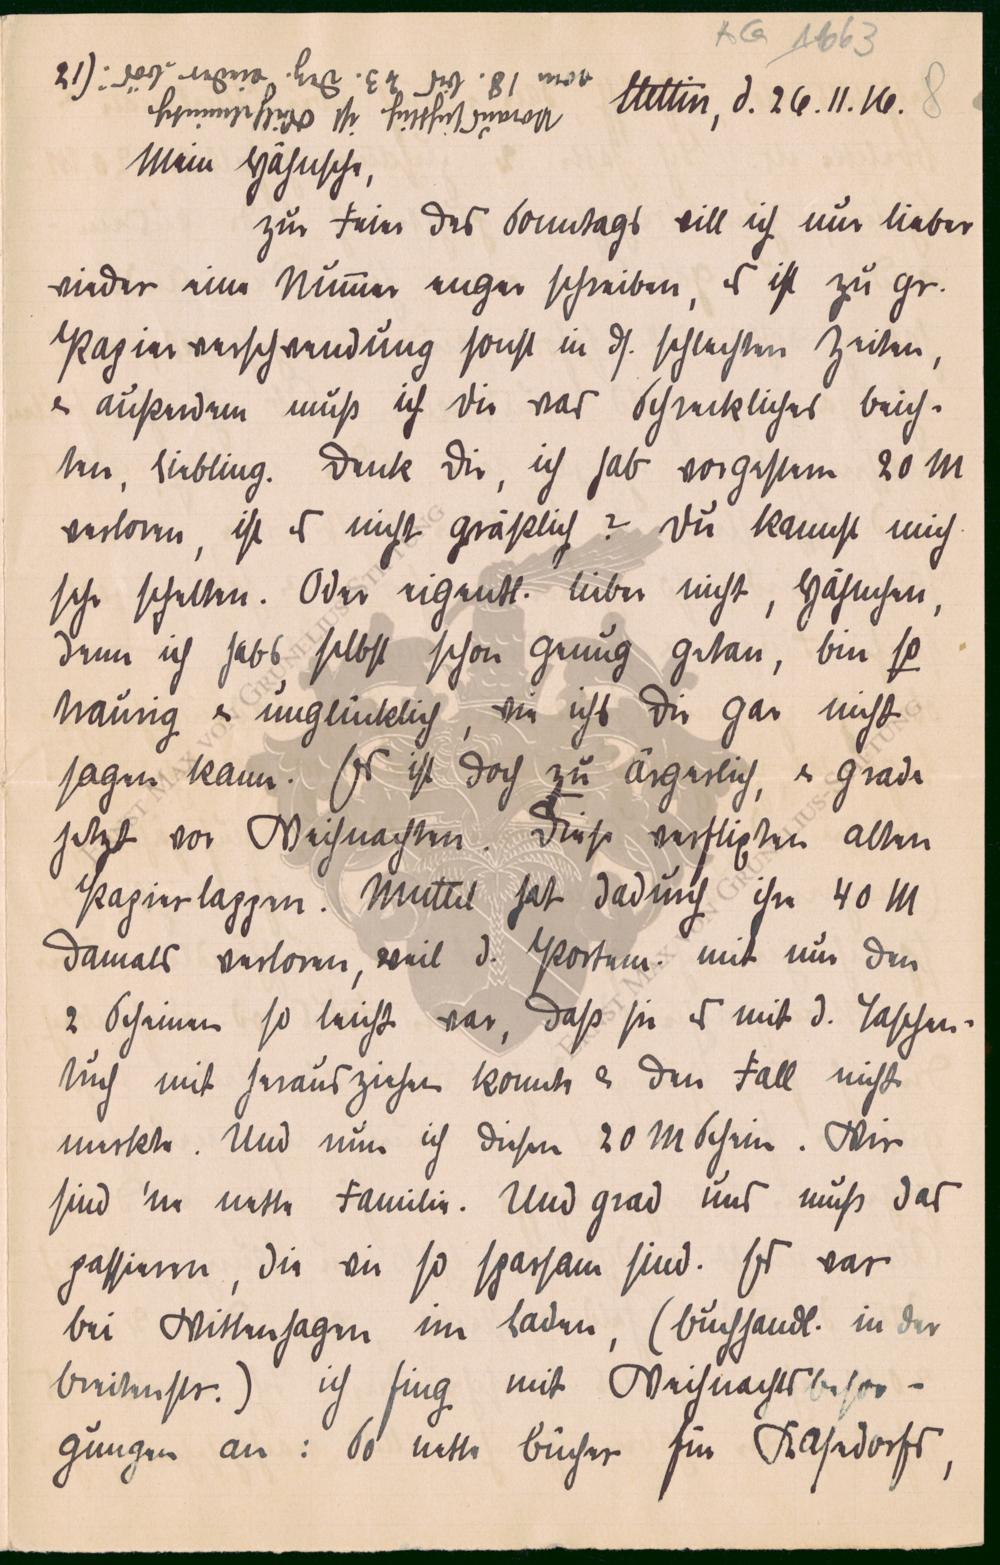 KG 1663
8
21)
Voraussichtlich ist
vom 18. bis 23. Dez. wieder
Stettin, d. 26.11.16.
Mein Hähnsche,
zur Feier des Sonntags will ich nur lieber
wieder eine Nummer enger schreiben, es ist zu gr.
Papierverschwendung sonst in ds. schlechten Zeiten,
& außerdem muß ich Dir was Schreckliches beich-
ten, Liebling. Denk Dir, ich hab vorgestern 20 M
verloren, ist es nicht gräßlich? Du kannst mich
sehr schelten. Oder eigentl. lieber nicht, Hähnchen,
denn ich habs selbst schon genug getan, bin so
traurig & unglücklich, wie ichs Dir gar nicht
sagen kann. Es ist doch zu ärgerlich, & grade
jetzt vor Weihnachten. Diese verflixten alten
Papierlappen. Muttel hat dadurch ihre 40 M
damals verloren, weil d. Portem. mit nur den
2 Scheinen so leicht war, daß sie es mit d. Taschen-
tuch mit herausziehen konnte & den Fall nicht
merkte. Und nun ich diesen 20 M Schein. Wir
sind 'ne nette Familie. Und grad uns muß das
passieren, die wir so sparsam sind. Es war
bei Wittenhagen im Laden, (Buchhandl. in der
Breitenstr.) ich fing mit Weihnachtsbesor-
gungen an: So nette Bücher für
ERNST MAX VON GRUNELIUS-STIFTUNG
ERNST MAX VON GRUNELIUS-STIFTUNG